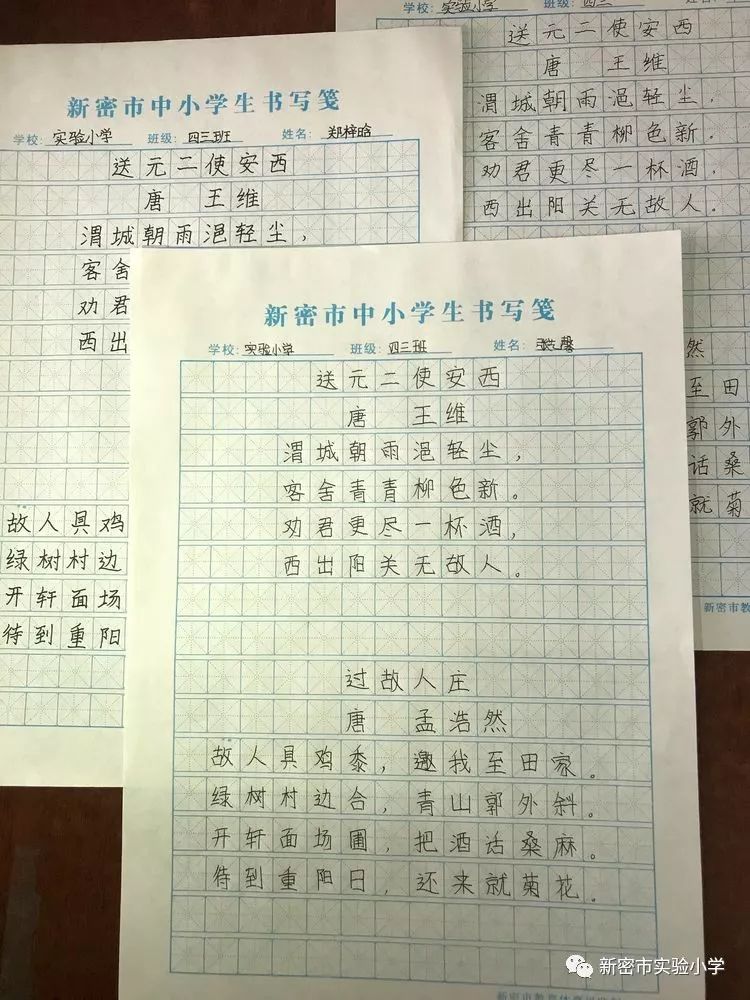 新密市中小学生书写笺
学校：实验小学 班级：四三班 姓名：郑梓晗
送元二使安西
唐 王维
渭城朝雨浥轻尘，
客舍
劝君
西出
故人具鸡
绿树村边
开轩面场
待到重阳
学校：实验小学 班级：四三
送元二使安西
唐 王维
渭城朝雨浥轻尘，
客舍青青柳色新．
劝君更尽一杯酒，
西出阳关无故人．
然
至田
郭外
话桑
就菊
新密市教
新密市中小学生书写笺
学校：实验小学 班级：四三班 姓名：
送元二使安西
唐 王维
渭城朝雨浥轻尘，
客舍青青柳色新。
劝君更尽一杯酒，
西出阳关无故人。
过故人庄
唐 孟浩然
故人具鸡黍，邀我至田家。
绿树村边合，青山郭外斜。
开轩面场圃，把酒话桑麻。
待到重阳日，还来就菊花。
新密市教育体育
新密市实验小学